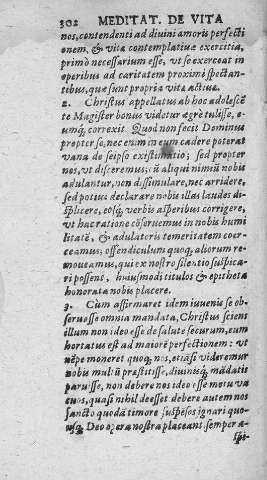 302 MEDITAT. DE VITA
nos, contendenti ad diuini amoris perfecti
onem, & vitæ contemplatiuæ exercitia,
primò necessarium esse, vt se exerceat in
operibus ad caritatem proximi spectan-
tibus, quæ sunt propria vitæ actiuæ.
2. Christus appellatus ab hoc adolescē
te Magister bonus videtur ægrè tulisse, e-
umq́; correxit. Quod non fecit Dominus
propter se, nec enim in eum cadere poterat
vana de seipso existimatio; sed propter
nos, vt disceremus, ü aliqui nimiū nobis
adulantur, non dissimulare, nec arridere,
sed potius declarare nobis illas laudes di-
splicere, eosq́; verbis asperibus corrigere,
vt hac ratione cōseruemus in nobis humi
litatē, & adulatoris temeritatem coër-
ceamus; offendiculum quoq́; aliorum re-
moueamus, qui ex nostro silentio suspica-
ri possent, huiusmodi titulos & epitheta
honorata nobis placere.
3. Cum affirmaret idem iuuenis se ob-
seruasse omnia mandata, Christus sciens
illum non ideo esse de salute securum, eum
hortatus est ad maiorē perfectionem: vt
nēpe moneret quoq́; nos, etiāsi videremur
nobis multū præstitisse, diuinisq́; mādatis
paruisse, non debere nos ideo esse metu va
cuos, quasi nihil deesset debere autem nos
sancto quodā timore suspēsos ignari quo-
usq́; Deo opera nostra placeant, semper a-
spi-